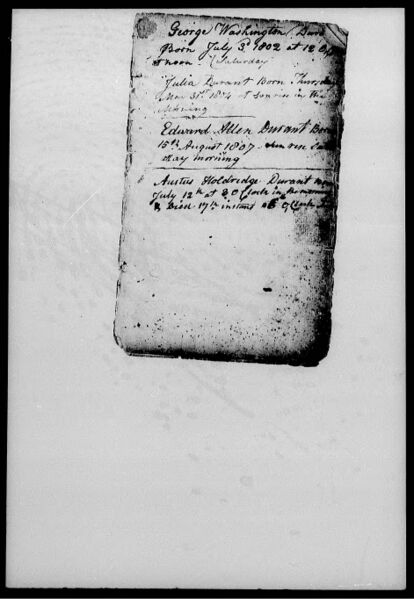 George Washington Dura
Born July 3d 1802 at 12 O
at noon (Saturday
Julia Durant Born Thursda
May 31st at Sunrise in the
Morning
Edward Allen Durant Bor
15th August 1807 Sun
day morning
Austus Holdridge Durant
July 12th at 3 O Clock in
& Died 17th instant at O Clock